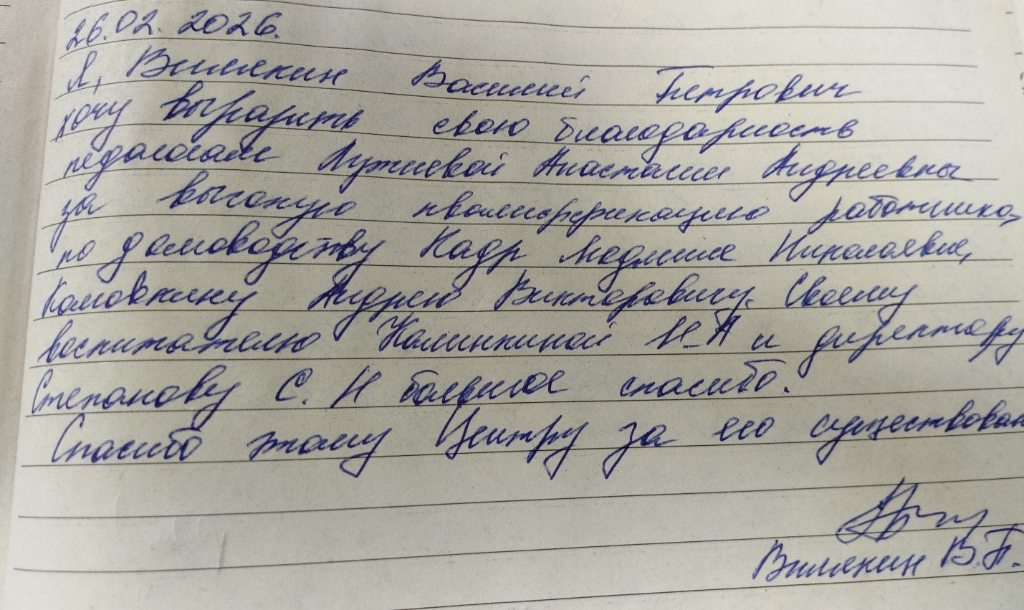 26.02.2026.
Я, Вилякин Василий Петрович
хочу выразить свою благодарность
педагогам Лужневой Анастасии Андреевны
за высокую квалификацию работника,
по домоводству Кадр Людмиле Николаевне,
Комовкину Андрею Викторовичу. Своему
воспитателю Калинкиной Н.А и директору
Степанову С. Н большое спасибо.
Спасибо этому Центру за его существован
Вилякин В.П.